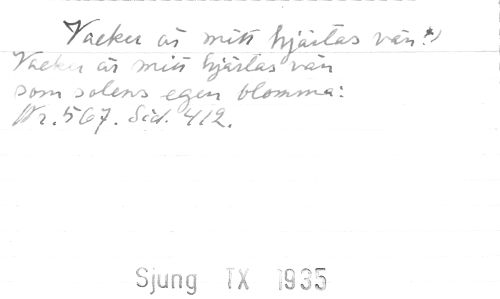 Vacker är mitt hjärtas vän.*)
Vacker är mitt hjärtas vän
som solens egen blomma:
Nr. 567. Sid. 412.
Sjung IX 1935